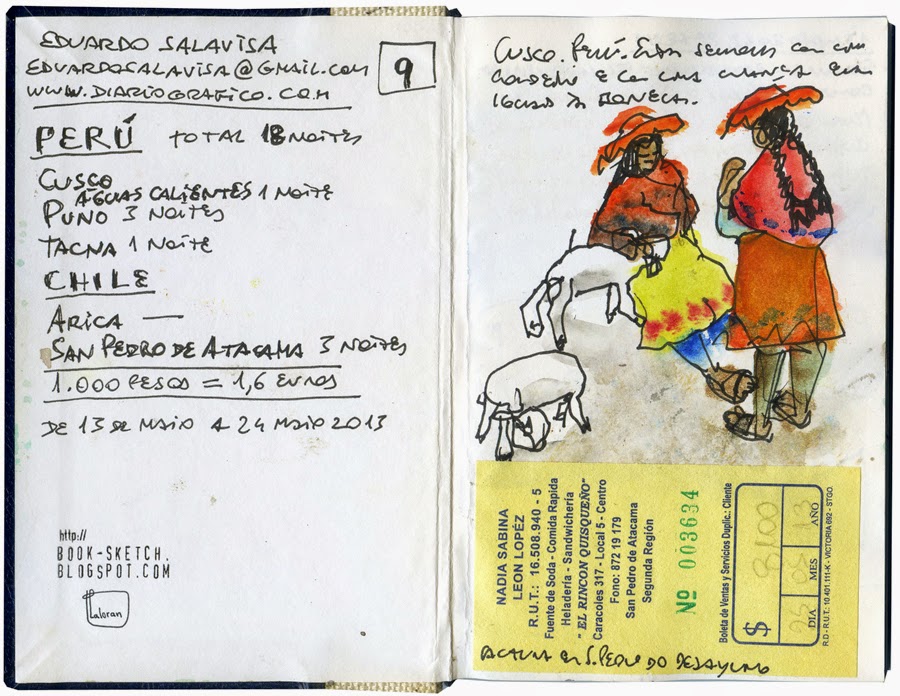 EDUARDO SALAVISA
EDUARDOSALAVISA@GMAIL.COM
WWW.DIARIOGRAFICO.COM
9
PERÚ TOTAL 18 NOITES
CUSCO
ÁGUAS CALIENTES 1 NOITE
PUNO 3 NOITES
TACNA 1 NOITE
CHILE
ARICA —
SAN PEDRO DE ATACAMA 3 NOITES
1.000 PESOS = 1,6 EUROS
DE 13 DE MAIO A 24 MAIO 2013
http://
BOOK-SKETCH.
BLOGSPOT.COM
Laloran
Cusco. Perú. com um
e com uma criança
NADIA SABINA
LEON LOPÉZ
R.U.T.: 16.508.940 - 5
Fuente de Soda - Comida Rapida
Heladería - Sandwichería
" EL RINCON QUISQUEÑO"
Caracoles 317 - Local 5 - Centro
Fono: 872 19 179
San Pedro de Atacama
Segunda Región
Nº 003634
Boleta de Ventas y Servicios Duplic.: Cliente
$ 8100
05 13
DIA MES AÑO
R.D - R.U.T.: 10.401.111-K - VICTORIA 692 - STGO.
S. PEDRO DO DESAYUNO